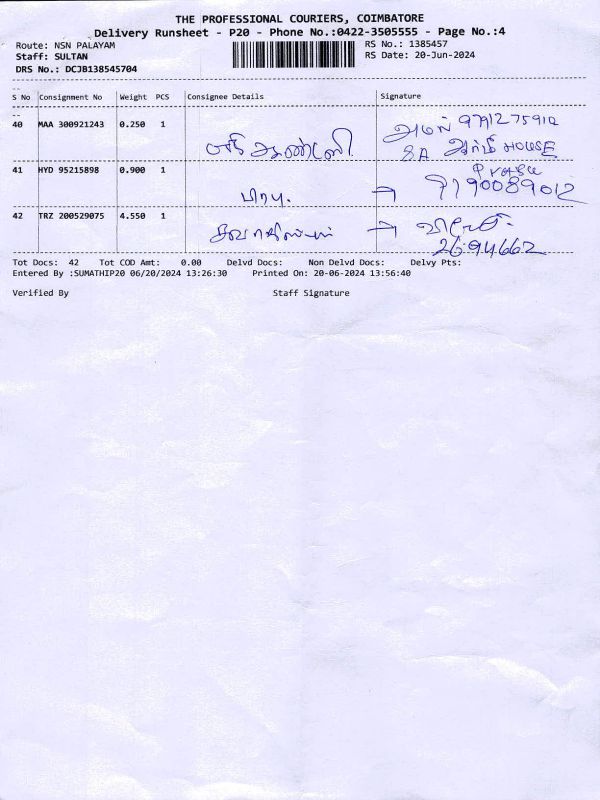 THE PROFESSIONAL COURIERS, COIMBATORE
Delivery Runsheet - P20 - Phone No.:0422-3505555 - Page No.:4
Route: NSN PALAYAM
Staff: SULTAN
DRS No.: DCJB138545704
RS No.: 1385457
RS Date: 20-Jun-2024
S No Consignment No Weight PCS Consignee Details Signature
40 MAA 300921243 0.250 1 9791275912
8A HOUSE
41 HYD 95215898 0.900 1 பிரபு. → 7190089012
42 TRZ 200529075 4.550 1 →
Tot Docs: 42 Tot COD Amt: 0.00 Delvd Docs: Non Delvd Docs: Delvy Pts:
Entered By :SUMATHIP20 06/20/2024 13:26:30 Printed On: 20-06-2024 13:56:40
Verified By Staff Signature